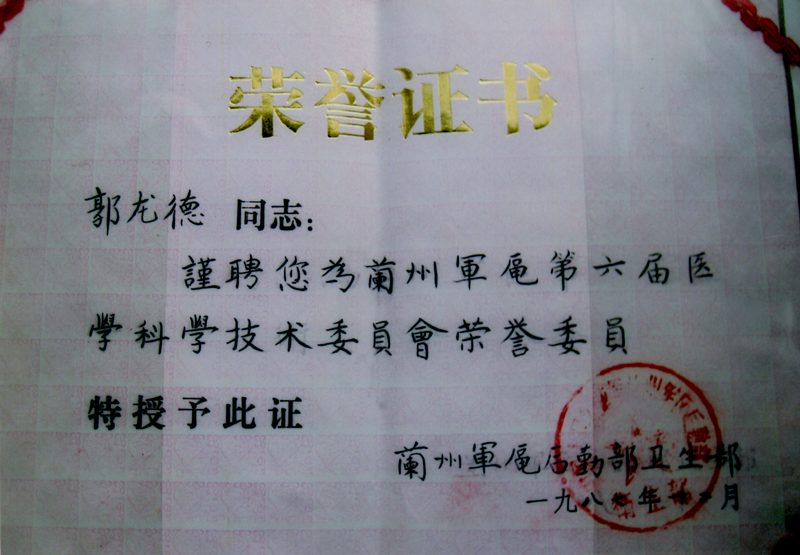 荣誉证书
郭龙德 同志：
謹聘您为蘭州軍區第六届医
學科學技术委員會荣誉委員
特授予此证
蘭州軍區后勤部卫生部
一九八 年十 月